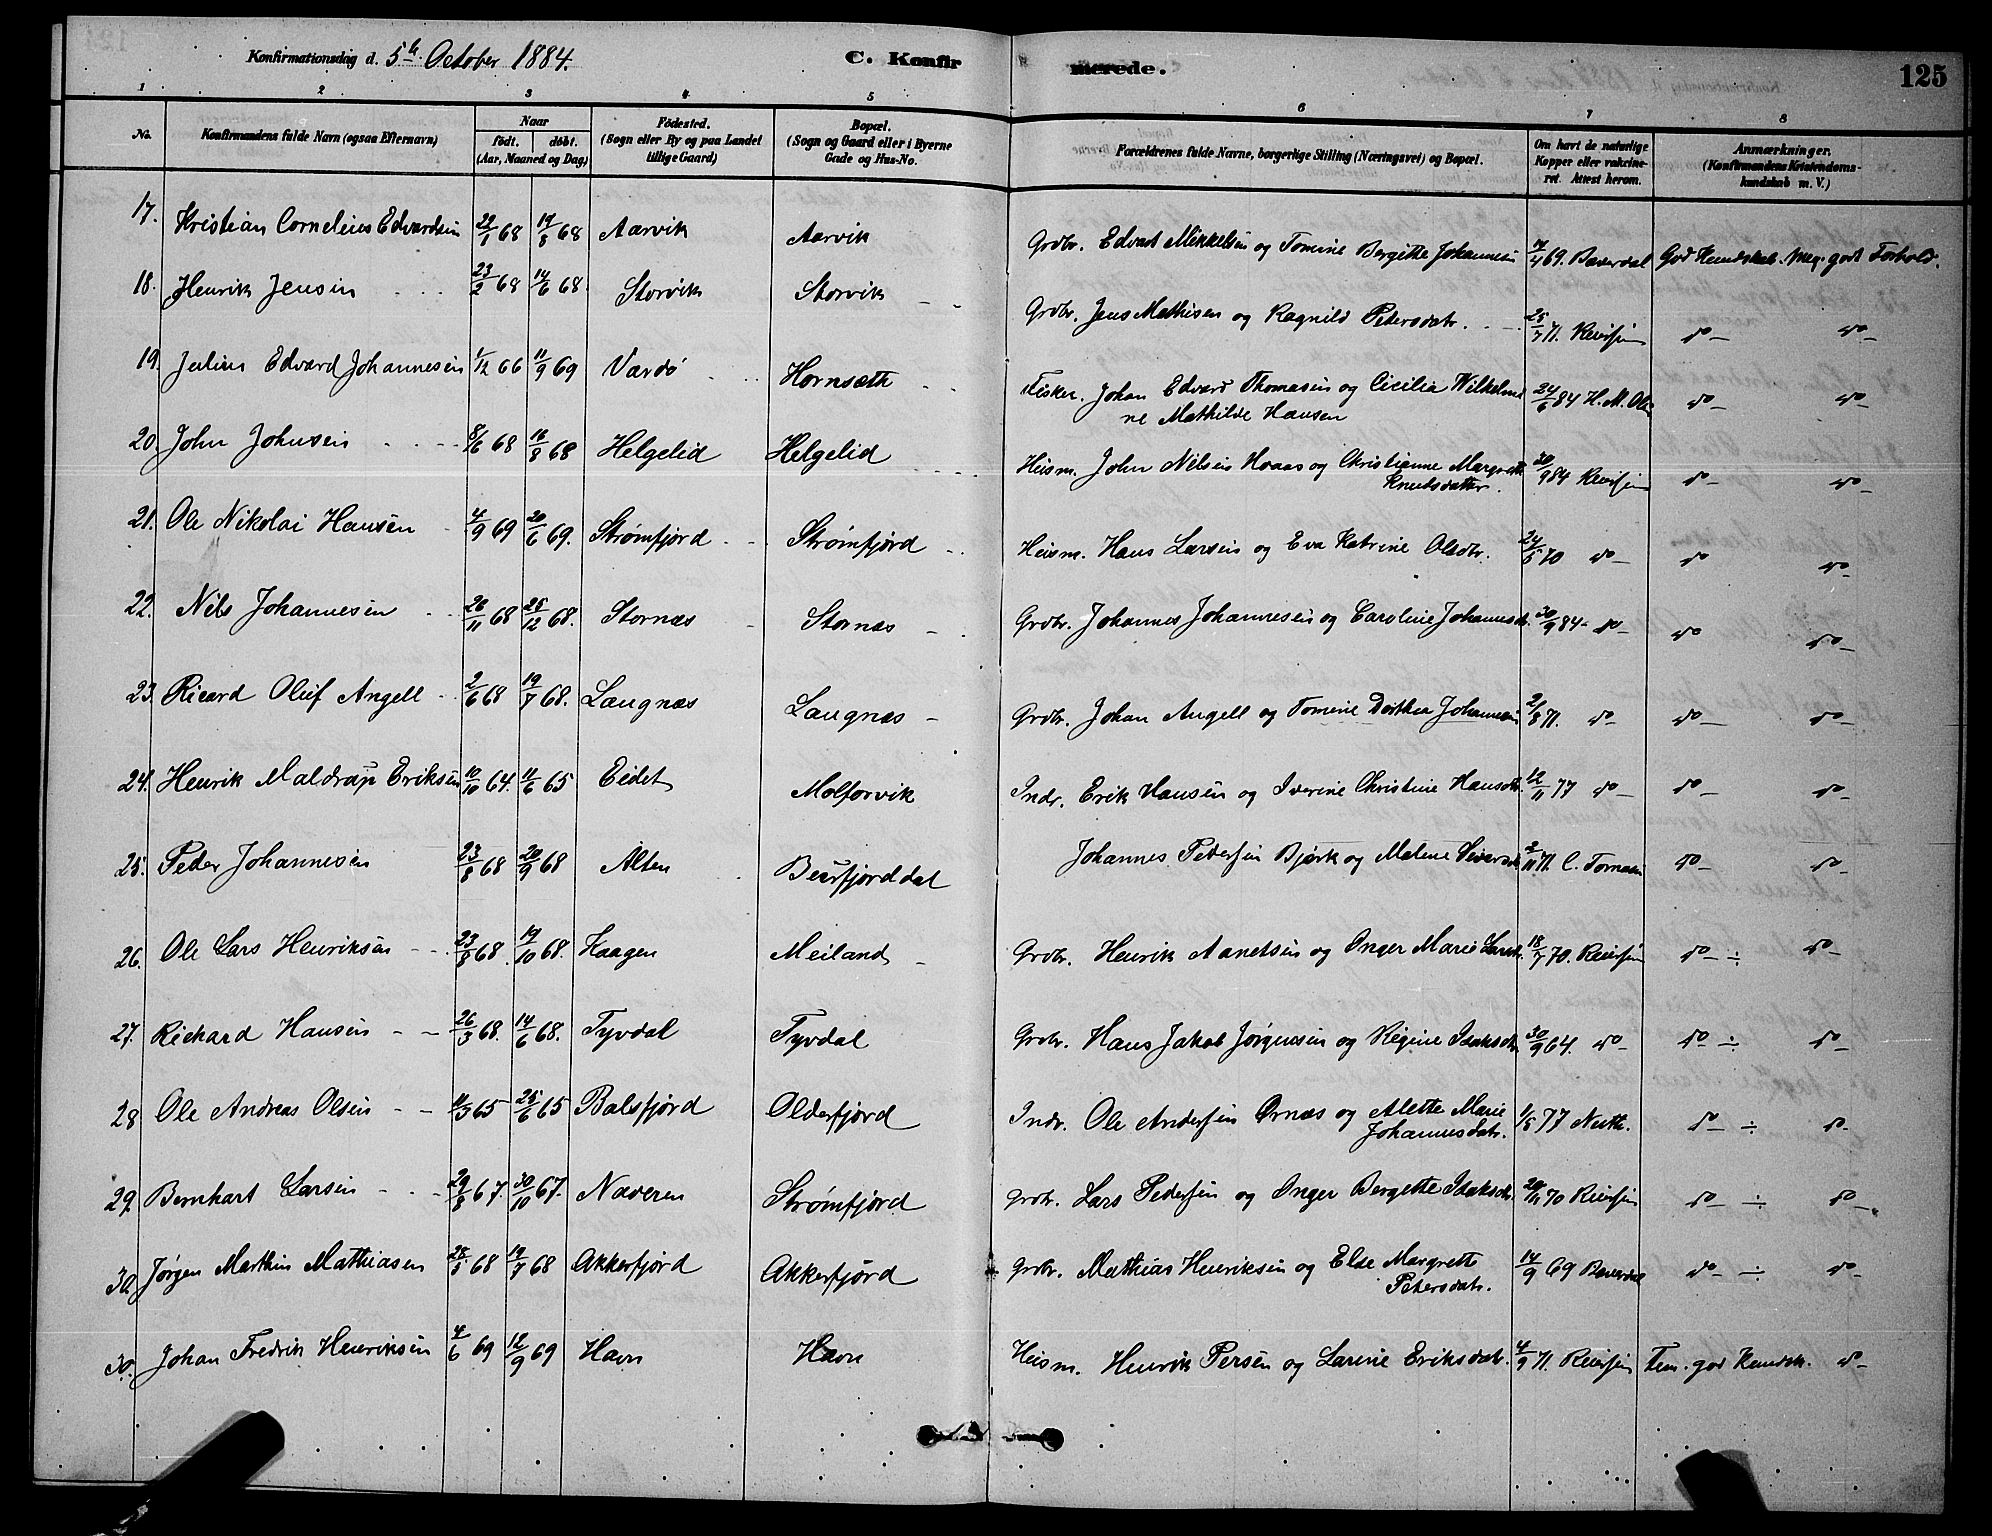 Konfirmationsdag d. 5te October 1884. C. Konfirmerede. 125
1 2 3 4 5 6 7 8
No. Konfirmandens fulde Navn (ogsaa Efternavn) Naar født. døbt. (Aar, Maaned og Dag) Fødested. (Sogn eller By og paa Landet tillige Gaard) Bopæl. (Sogn og Gaard eller i Byerne Gade og Hus-No. Forældrenes fulde Navne, borgerlige Stilling (Næringsvei) og Bopæl. Om havt de naturlige Kopper eller vakcineret. Attest herom. Anmærkninger. (Konfirmandens Kristendomskundskab m. V.)
17. Kristian Cornelius Edvardsen 22/1 68 19/8 68 Aarvik Aarvik Grdbr. Edvart Mikkelsen og Tomine Bergitte Johannesen /4 69. Baverdal God Kundskab. Meg. godt Forhold.
18. Henrik Jensen 23/2 68 14/6 68. Storvik Storvik Grdbr. Jens Mathisen og Ragnild Petersdatr. 25/7 71. Reiersen do do
19. Julius Edvard Johannesen 1/12 66 11/9 69 Vardö Hornsæth Fisker. Johan Edvard Thomasen og Cicilia Wilhelmine Mathilde Hansen 24/6 84 H. M. Ols do do
20. John Johnsen 8/6 68 16/8 68 Helgelid Helgelid Husm. John Nilsen Hoaas og Christianne Margrette Knutsdatter. 30/9 84 Reiersen do do
21. Ole Nikolai Hansen 4/9 69 20/6 69. Strømfjord Strømfjord Husm. Hans Larsen og Eva Katrine Olsdtr. 24/5 70 do do do
22. Nils Johannesen 26/11 68 25/12 68. Stornæs Stornæs Grdbr. Johannes Johannesen og Caroline Johannesd. 30/9 84 do do do
23. Ricard Oluf Angell 2/6 68 19/7 68. Langnæs Langnæs Grdbr. Johan Angell og Tomine Dorthea Johannesen 2/8 71. do do do
24. Henrik Maldrup Eriksen 10/10 64. 11/6 65 Eidet Molforvik Indr. Erik Hansen og Iverine Christine Hansdtr. 12/11 77 do do do
25. Peder Johannesen 23/8 68 20/9 68 Alten Beusfjorddal Johannes Petersen Bjørk og Malene Sivers 2/11 71. C. Tomasen do do
26. Ole Lars Henriksen 23/8 68. 19/10 68. Kaagen Meiland Grdbr. Henrik Aanetsen og Inger Marie Larsd. 18/7 70. Reiersen do ÷ do
27. Rickard Hansen 26/3 68. 14/6 68. Tyvdal Tyvdal Grdbr. Hans Jakob Jörgensen og Regine Isaksdr. 30/9 64. do do ÷ do
28. Ole Andreas Olsen 11/3 65 25/6 65 Balsfjord Olderfjord Indr. Ole Andersen Ørnæs og Alette Marie Johannesdatr. 1/5 77 do ÷ do
29. Bernhart Larsen 29/8 67. 30/10 67. Naveren Strømfjord Grdbr. Lars Pedersen og Inger Bergette Isaksdr. 70 Reiersen do ÷ do
30. Jørgen Marthin Mathiasen 28/5 68 19/7 68 Akkerfjord Akkerfjord Grdbr. Mathias Henriksen og Else Margrette Petersdatr. 14/9 69 Baverdal do ÷ do
30. Johan Fredrik Henriksen 4/6 69 12/9 69 Havn Havn Husm. Henrik Persen og Larine Eriksdatr. 4/9 71. Reiersen Tem. god Kundsk. do